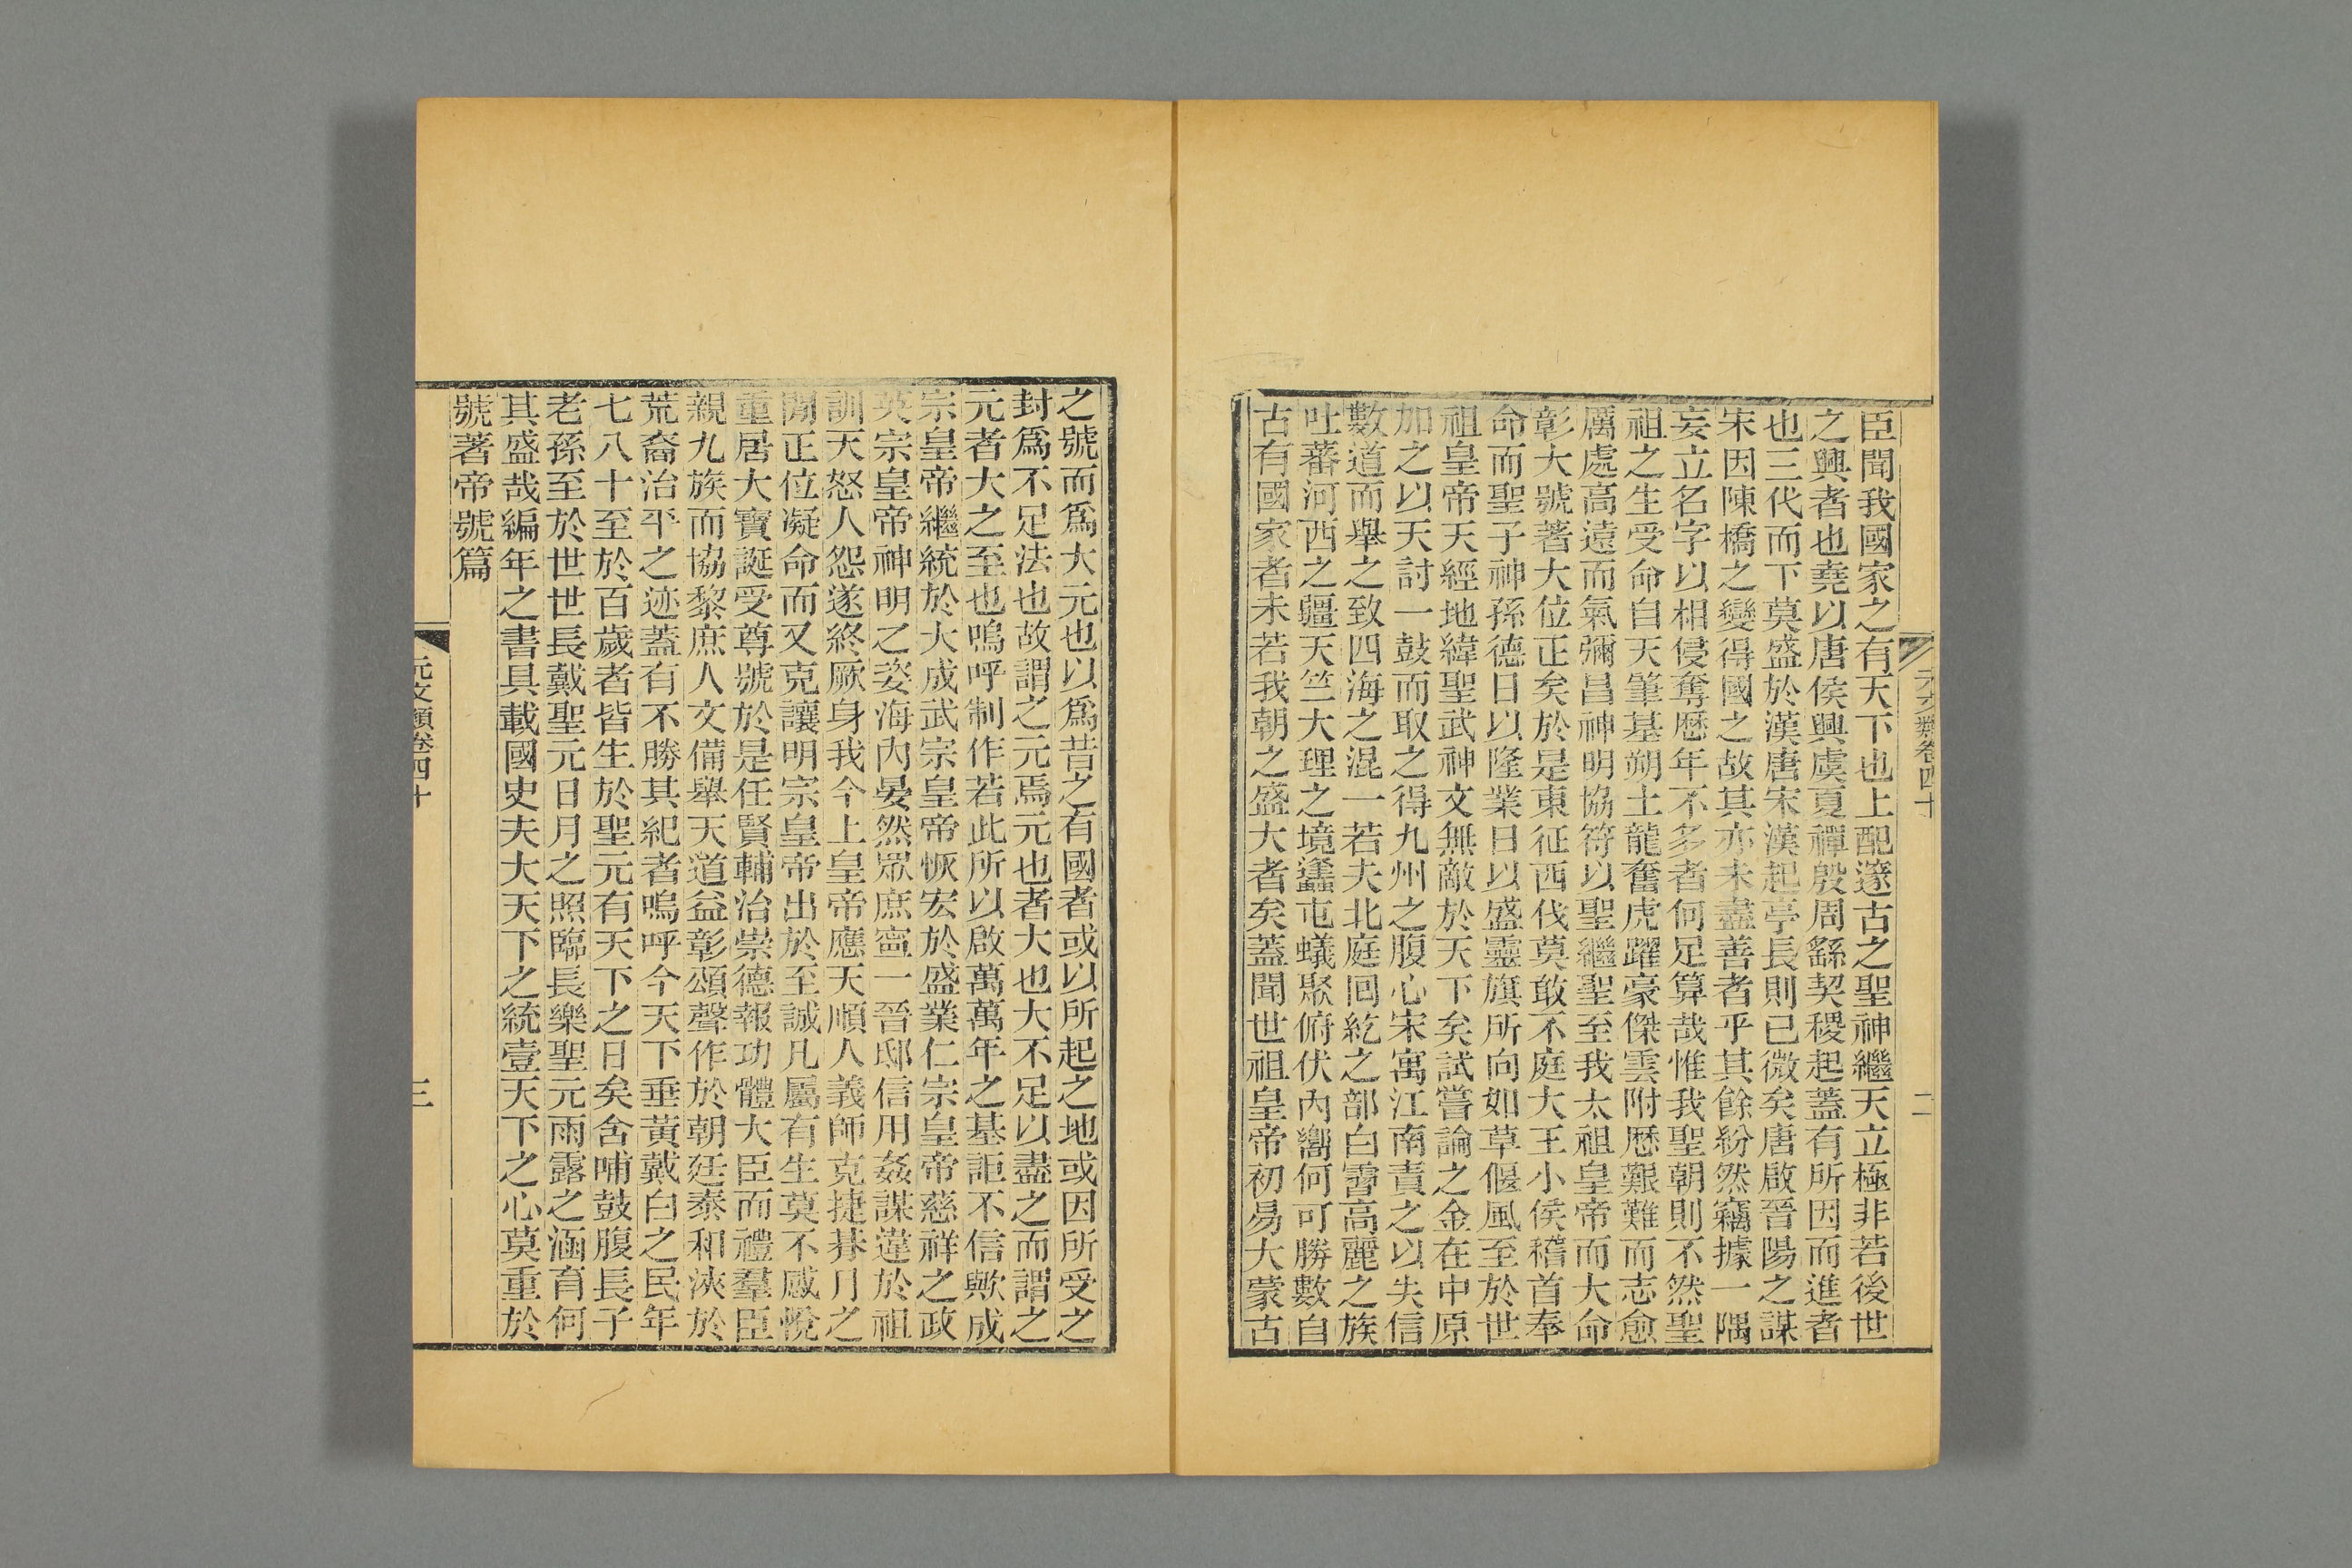 臣聞我國家之有天下也上配邃古之聖神繼天立極非若後世
之興者也堯以唐侯興虞夏禪殷周繇契稷起蓋有所因而進者
也三代而下莫盛於漢唐宋漢起亭長則已微矣唐啟晉陽之謀
宋因陳橋之變得國之故其亦未盡善者乎其餘紛然竊據一隅
妄立名字以相侵奪歷年不多者何足算哉惟我聖朝則不然聖
祖之生受命自天肇基朔土龍奮虎躍豪傑雲附歷艱難而志愈
厲處高遠而氣彌昌神明協符以聖繼聖至我太祖皇帝而大命
彰大號著大位正矣於是東征西伐莫敢不庭大王小侯稽首奉
命而聖子神孫德日以隆業日以盛靈旗所向如草偃風至於世
祖皇帝天經地緯聖武神文無敵於天下矣試嘗論之金在中原
加之以天討一鼓而取之得九州之腹心宋寓江南責之以失信
數道而舉之致四海之混一若夫北庭回紇之部白霫高麗之族
吐蕃河西之疆天竺大理之境蠭屯蟻聚俯伏內嚮何可勝數自
古有國家者未若我朝之盛大者矣蓋聞世祖皇帝初易大蒙古
元文類卷四十
二
之號而爲大元也以爲昔之有國者或以所起之地或因所受之
封爲不足法也故謂之元焉元也者大也大不足以盡之而謂之
元者大之至也嗚呼制作若此所以啟萬萬年之基詎不信歟成
宗皇帝繼統於大成武宗皇帝恢宏於盛業仁宗皇帝慈祥之政
英宗皇帝神明之姿海內晏然眾庶寍一晉邸信用姦謀違於祖
訓天怒人怨遂終厥身我今上皇帝應天順人義師克捷朞月之
閒正位凝命而又克讓明宗皇帝出於至誠凡屬有生莫不感悅
重居大寶誕受尊號於是任賢輔治崇德報功體大臣而禮羣臣
親九族而協黎庶人文備舉天道益彰頌聲作於朝廷泰和浹於
荒裔治平之迹蓋有不勝其紀者嗚呼今天下垂黃戴白之民年
七八十至於百歲者皆生於聖元有天下之日矣含哺鼓腹長子
老孫至於世世長戴聖元日月之照臨長樂聖元雨露之涵育何
其盛哉編年之書具載國史夫大天下之統壹天下之心莫重於
號著帝號篇
元文類卷四十
三